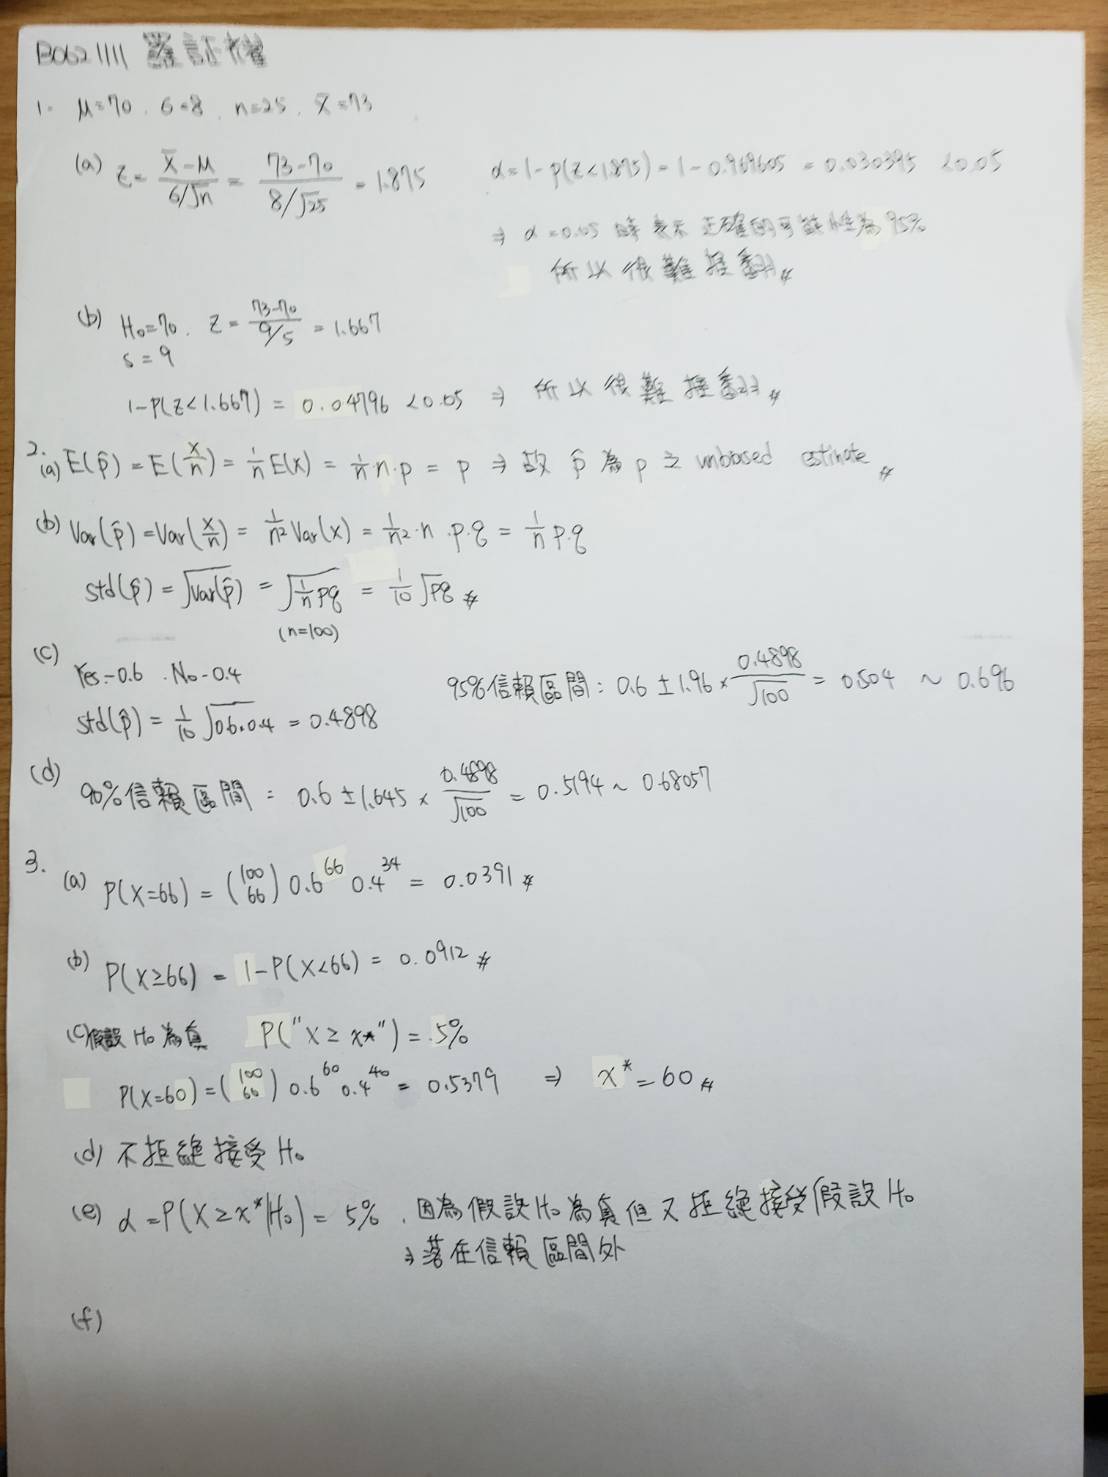 B0621111 羅証權
1. μ=70 . σ=8 . n=25 . x̄=73
(a) z= (x̄-μ)/(σ/√n) = (73-70)/(8/√25) = 1.875 α=1-p(z<1.875)=1-0.969605 = 0.030395 <0.05
⇒ α=0.05 時表示正確的可能性為95%
所以很難推翻#
(b) H₀=70 . z= (73-70)/(9/5) = 1.667
s=9
1-P(z<1.667) = 0.04796 <0.05 ⇒ 所以很難推翻#
2. (a) E(p̂) = E(x/n) = 1/n E(x) = 1/n·n·p = p ⇒ 故 p̂ 為 p 之 unbiased estimate#
(b) Var(p̂)=Var(x/n) = 1/n² Var(x) = 1/n²·n·p·q = 1/n p·q
std(p̂) = √Var(p̂) = √(1/n pq) = 1/10 √pq #
(n=100)
(c) Yes-0.6 . No-0.4
std(p̂) = 1/10 √0.6×0.4 = 0.4898 95%信賴區間: 0.6 ± 1.96 × 0.4898/√100 = 0.504 ~ 0.696
(d) 90%信賴區間 : 0.6 ± 1.645 × 0.4898/√100 = 0.5194 ~ 0.68057
3. (a) P(X=66) = (100 66) 0.6^66 0.4^34 = 0.0391 #
(b) P(X≥66) = 1-P(X<66) = 0.0912 #
(c) 假設 H₀ 為真 P("X ≥ x*") = 5%
P(X=60) = (100 60) 0.6^60 0.4^40 = 0.5379 ⇒ x* = 60 #
(d) 不拒絕接受 H₀
(e) α = P(X≥x*|H₀) = 5% . 因為假設H₀為真但又拒絕接受假設H₀
⇒ 落在信賴區間外
(f)